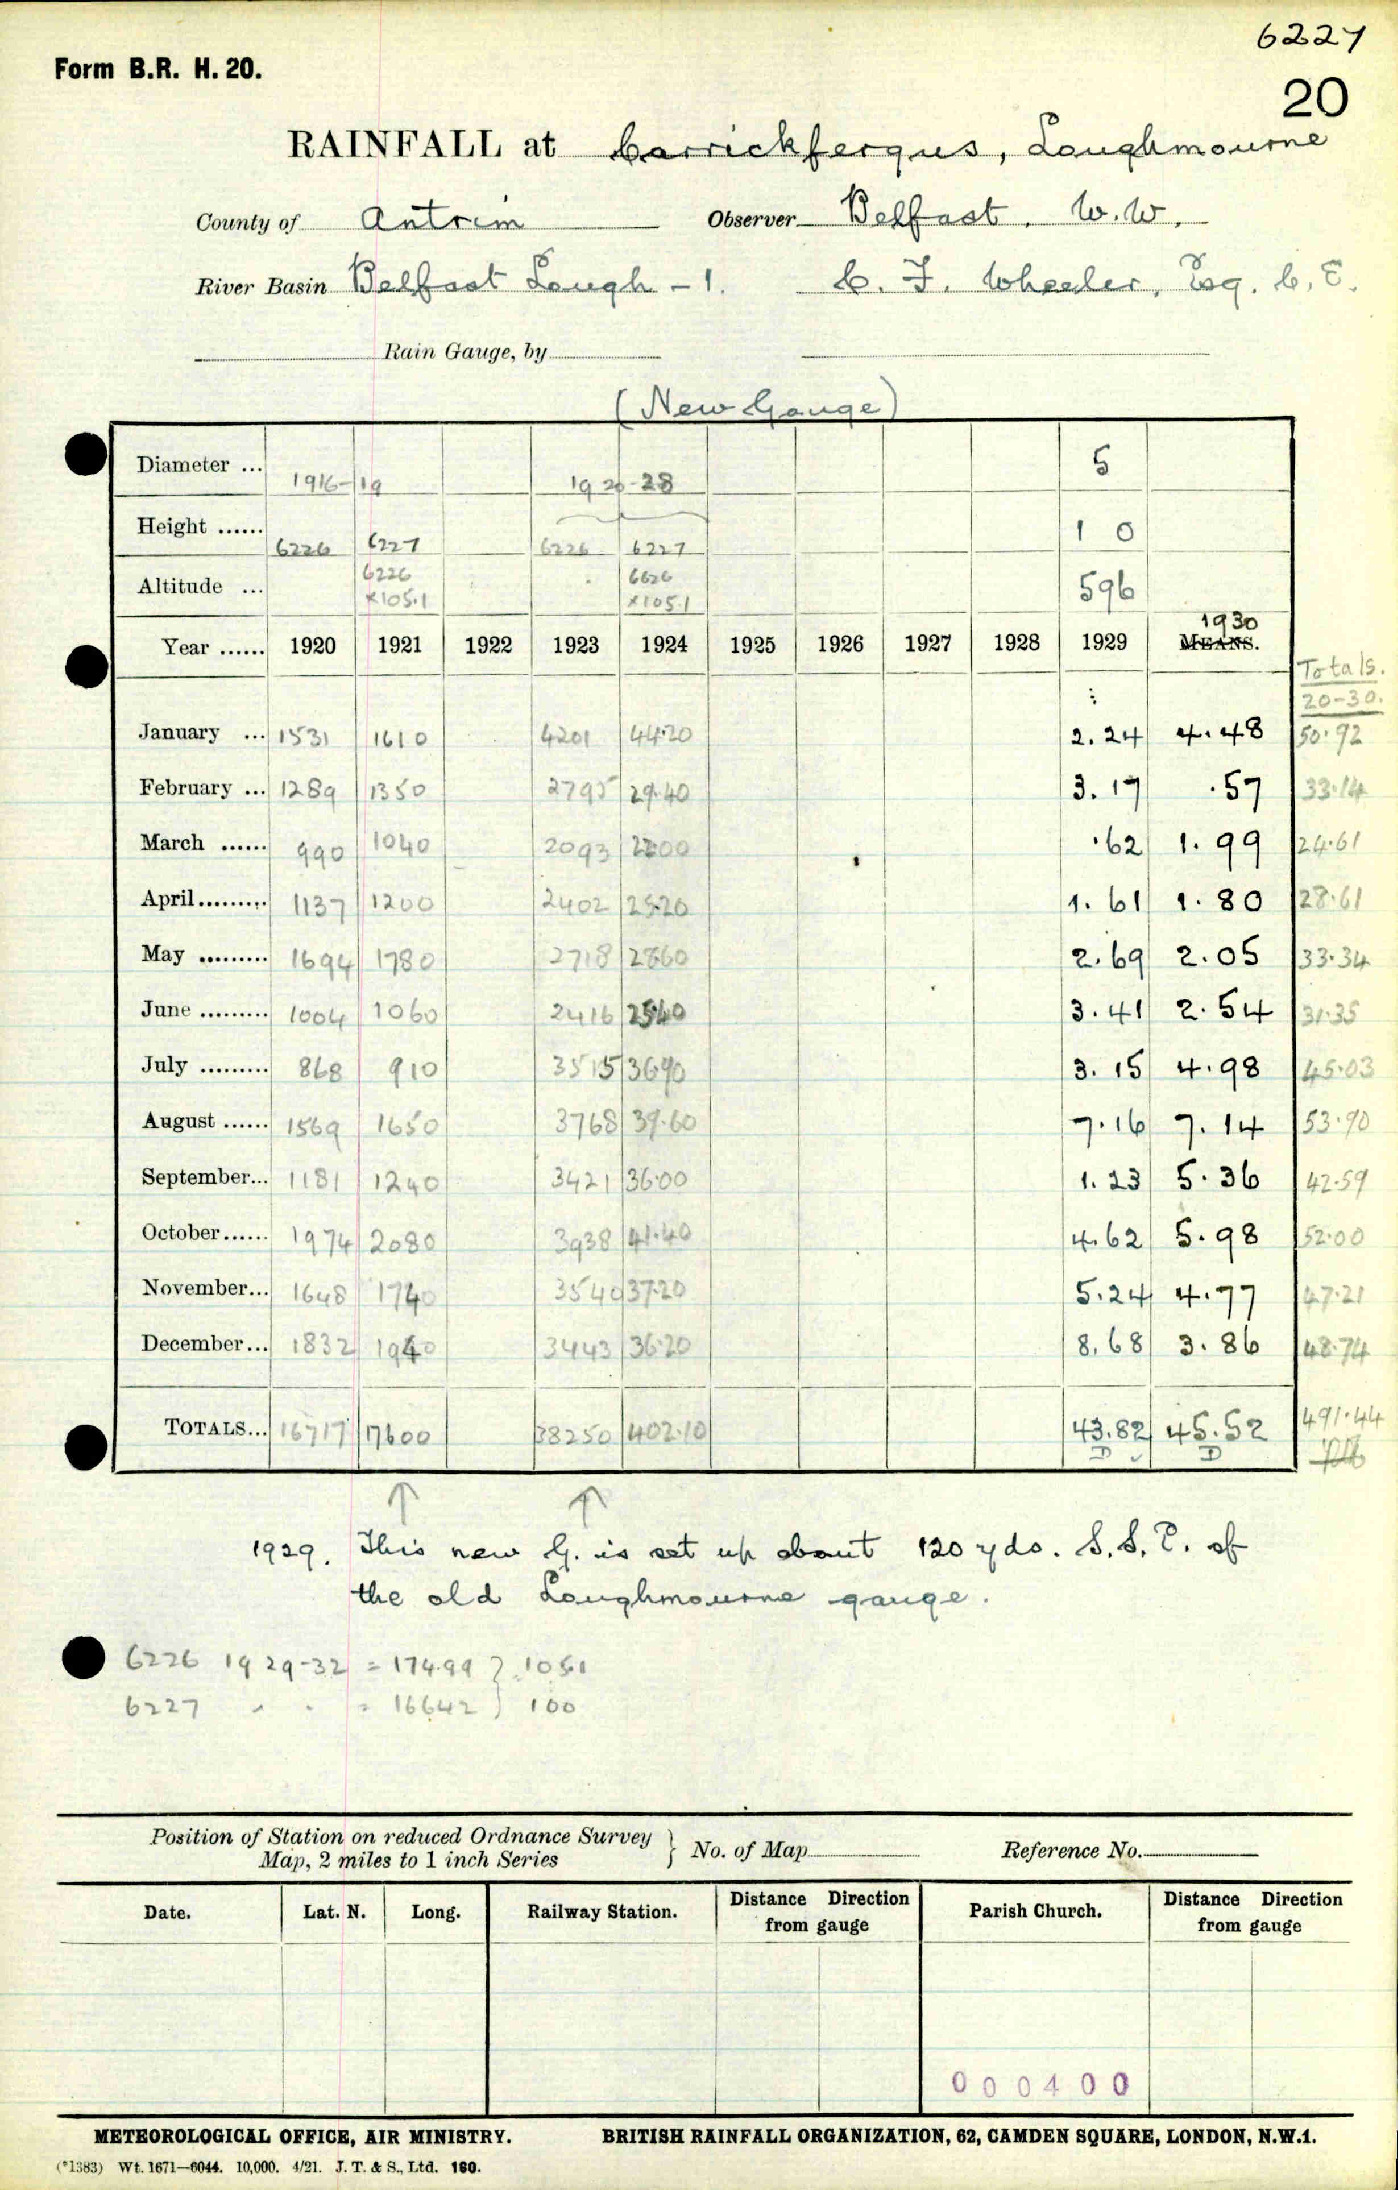 6227
Form B.R. H. 20.
20
RAINFALL at Carrickfergus, Loughmourne
County of Antrim Observer Belfast. W.W.
River Basin Belfast Lough - 1. C. F. Wheeler, Esq. C. E.
Rain Gauge, by
(New Gauge)
Diameter ... 1916-19 1920-28 5
Height ...... 6226 6227 6226 6227 1 0
Altitude ... 6226 ×105.1 6626 ×105.1 596
Year ...... 1920 1921 1922 1923 1924 1925 1926 1927 1928 1929 1930 MEANS.
Totals.
20-30.
January ... 1531 1610 4201 44.20 2.24 4.48 50.92
February ... 1289 1350 2795 29.40 3.17 .57 33.14
March ...... 990 1040 2093 2200 .62 1.99 24.61
April......... 1137 1200 2402 25.20 1.61 1.80 28.61
May ......... 1694 1780 2718 2860 2.69 2.05 33.34
June ......... 1004 1060 2416 2540 3.41 2.54 31.35
July ......... 868 910 3515 3690 3.15 4.98 45.03
August ...... 1569 1650 3768 39.60 7.16 7.14 53.90
September... 1181 1240 3421 36.00 1.23 5.36 42.59
October...... 1974 2080 3938 41.40 4.62 5.98 52.00
November... 1648 1740 3540 37.20 5.24 4.77 47.21
December... 1832 1940 3443 36.20 8.68 3.86 48.74
TOTALS... 16717 17600 38250 402.10 43.82 45.52 491.44
D D
1929. This new G. is set up about 120 yds. S.S.E. of
the old Loughmourne gauge.
6226 1929-32 = 174.99 } 105.1
6227 " " = 16642 } 100
Position of Station on reduced Ordnance Survey
Map, 2 miles to 1 inch Series } No. of Map Reference No.
Date. Lat. N. Long. Railway Station. Distance Direction from gauge Parish Church. Distance Direction from gauge
000400
METEOROLOGICAL OFFICE, AIR MINISTRY. BRITISH RAINFALL ORGANIZATION, 62, CAMDEN SQUARE, LONDON, N.W.1.
(*1383) Wt. 1671—6044. 10,000. 4/21. J. T. & S., Ltd. 160.